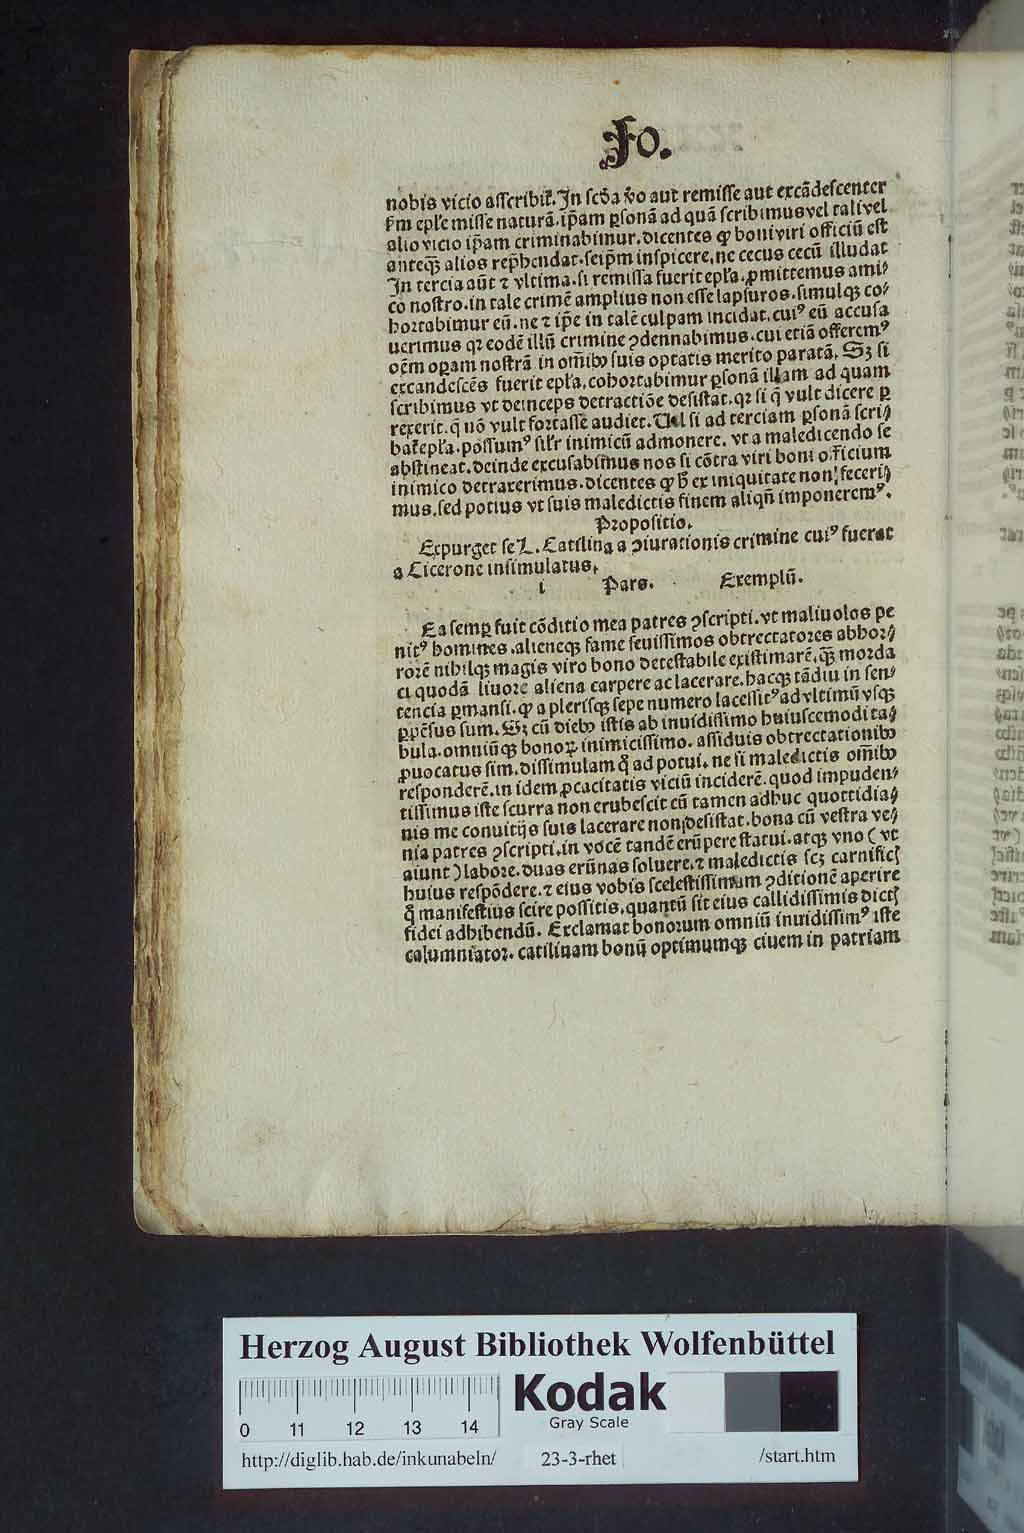 Jo.
nobis vicio asscribit᷑. In scd̄a v̄o aut remisse aut excãdescenter
s̄m epl̄e misse naturã. ip̄am ꝑsonã ad quã scribimus vel tali vel
alio vicio ip̄am criminabimur. dicentes ꝙ boni viri officiũ est
anteq̃ꝫ alios rep̃hendat. seip̄m inspicere. ne cecus cecũ illudat
In tercia aũt ⁊ vltima. si remissa fuerit epl̄a. ꝓmittemus ami⸗
cõ nostro. in tale crimẽ amplius non esse lapsuros. simulqꝫ co⸗
hortabimur eũ. ne ⁊ ip̄e in talẽ culpam incidat. cuiꝰ eũ accusa
uerimus qꝛ eodẽ illũ crimine ꝯdennabimus. cui etiã offeremꝰ
oẽm oꝑam nostrã in om̄ibꝫ suis optatis merito paratã. Sꝫ si
excandescẽs fuerit epl̄a. cohortabimur ꝑsonã illam ad quam
scribimus vt deinceps detractiõe desistat. qꝛ si q̄ vult dicere ꝑ
rexerit. q̄ nõ vult fortasse audiet. Uel si ad terciam ꝑsonã scri⸗
bat᷑ epl̄a. possumꝰ sil̄r inimicũ admonere. vt a maledicendo se
abstineat. deinde excusabimus nos si cõtra viri boni officium
inimico detraxerimus. dicentes ꝙ h̄ ex iniquitate non feceri⸗
mus. sed potius vt suis maledictis finem aliqñ imponeremꝰ.
Propositio.
Expurget se L. Catilina a ꝯiurationis crimine cuiꝰ fuerat
a Cicerone insimulatus.
i Pars. Exemplũ.
Ea semꝑ fuit cõditio mea patres ꝯscripti. vt maliuolos pe
nitꝰ homines. alieneqꝫ fame seuissimos obtrectatores abhor⸗
rorẽ nihilqꝫ magis viro bono detestabile existimarẽ. q̃ꝫ morda
ci quodã liuore aliena carpere ac lacerare. hacqꝫ tãdiu in sen⸗
tencia ꝑmansi. ꝙ a plerisqꝫ sepe numero lacessitꝰ ad vltimũ vsqꝫ
ꝑpẽsus sum. Sꝫ cũ diebꝫ istis ab inuidissimo huiuscemodi ta⸗
bula. omniũqꝫ bonoꝝ inimicissimo. assiduis obtrectationibꝫ
ꝓuocatus sim. dissimulam q̃ ad potui. ne si maledictis om̄ibꝫ
responderẽ. in idem ꝓcacitatis viciũ inciderẽ. quod impuden⸗
tissimus iste scurra non erubescit cũ tamen adhuc quottidia⸗
nis me conuitijs suis lacerare non desistat. bona cũ vestra ve⸗
nia patres ꝯscripti. in vocẽ tandẽ erũpere statui. atqꝫ vno ( vt
aiunt ) labore. duas erũnas soluere. ⁊ maledictis scꝫ carnificꝭ
huius respõdere. ⁊ eius vobis scelestissimam ꝯditionẽ aperire
q̃ manifestius scire possitis. quantũ sit eius callidissimis dictꝭ
fidei adhibendũ. Exclamat bonorum omniũ inuidissimꝰ iste
calumniator. catilinam bonũ optimumqꝫ ciuem in patriam
Herzog August Bibliothek Wolfenbüttel
Kodak
Gray Scale
0 11 12 13 14
http://diglib.hab.de/inkunabeln/ 23-3-rhet /start.htm